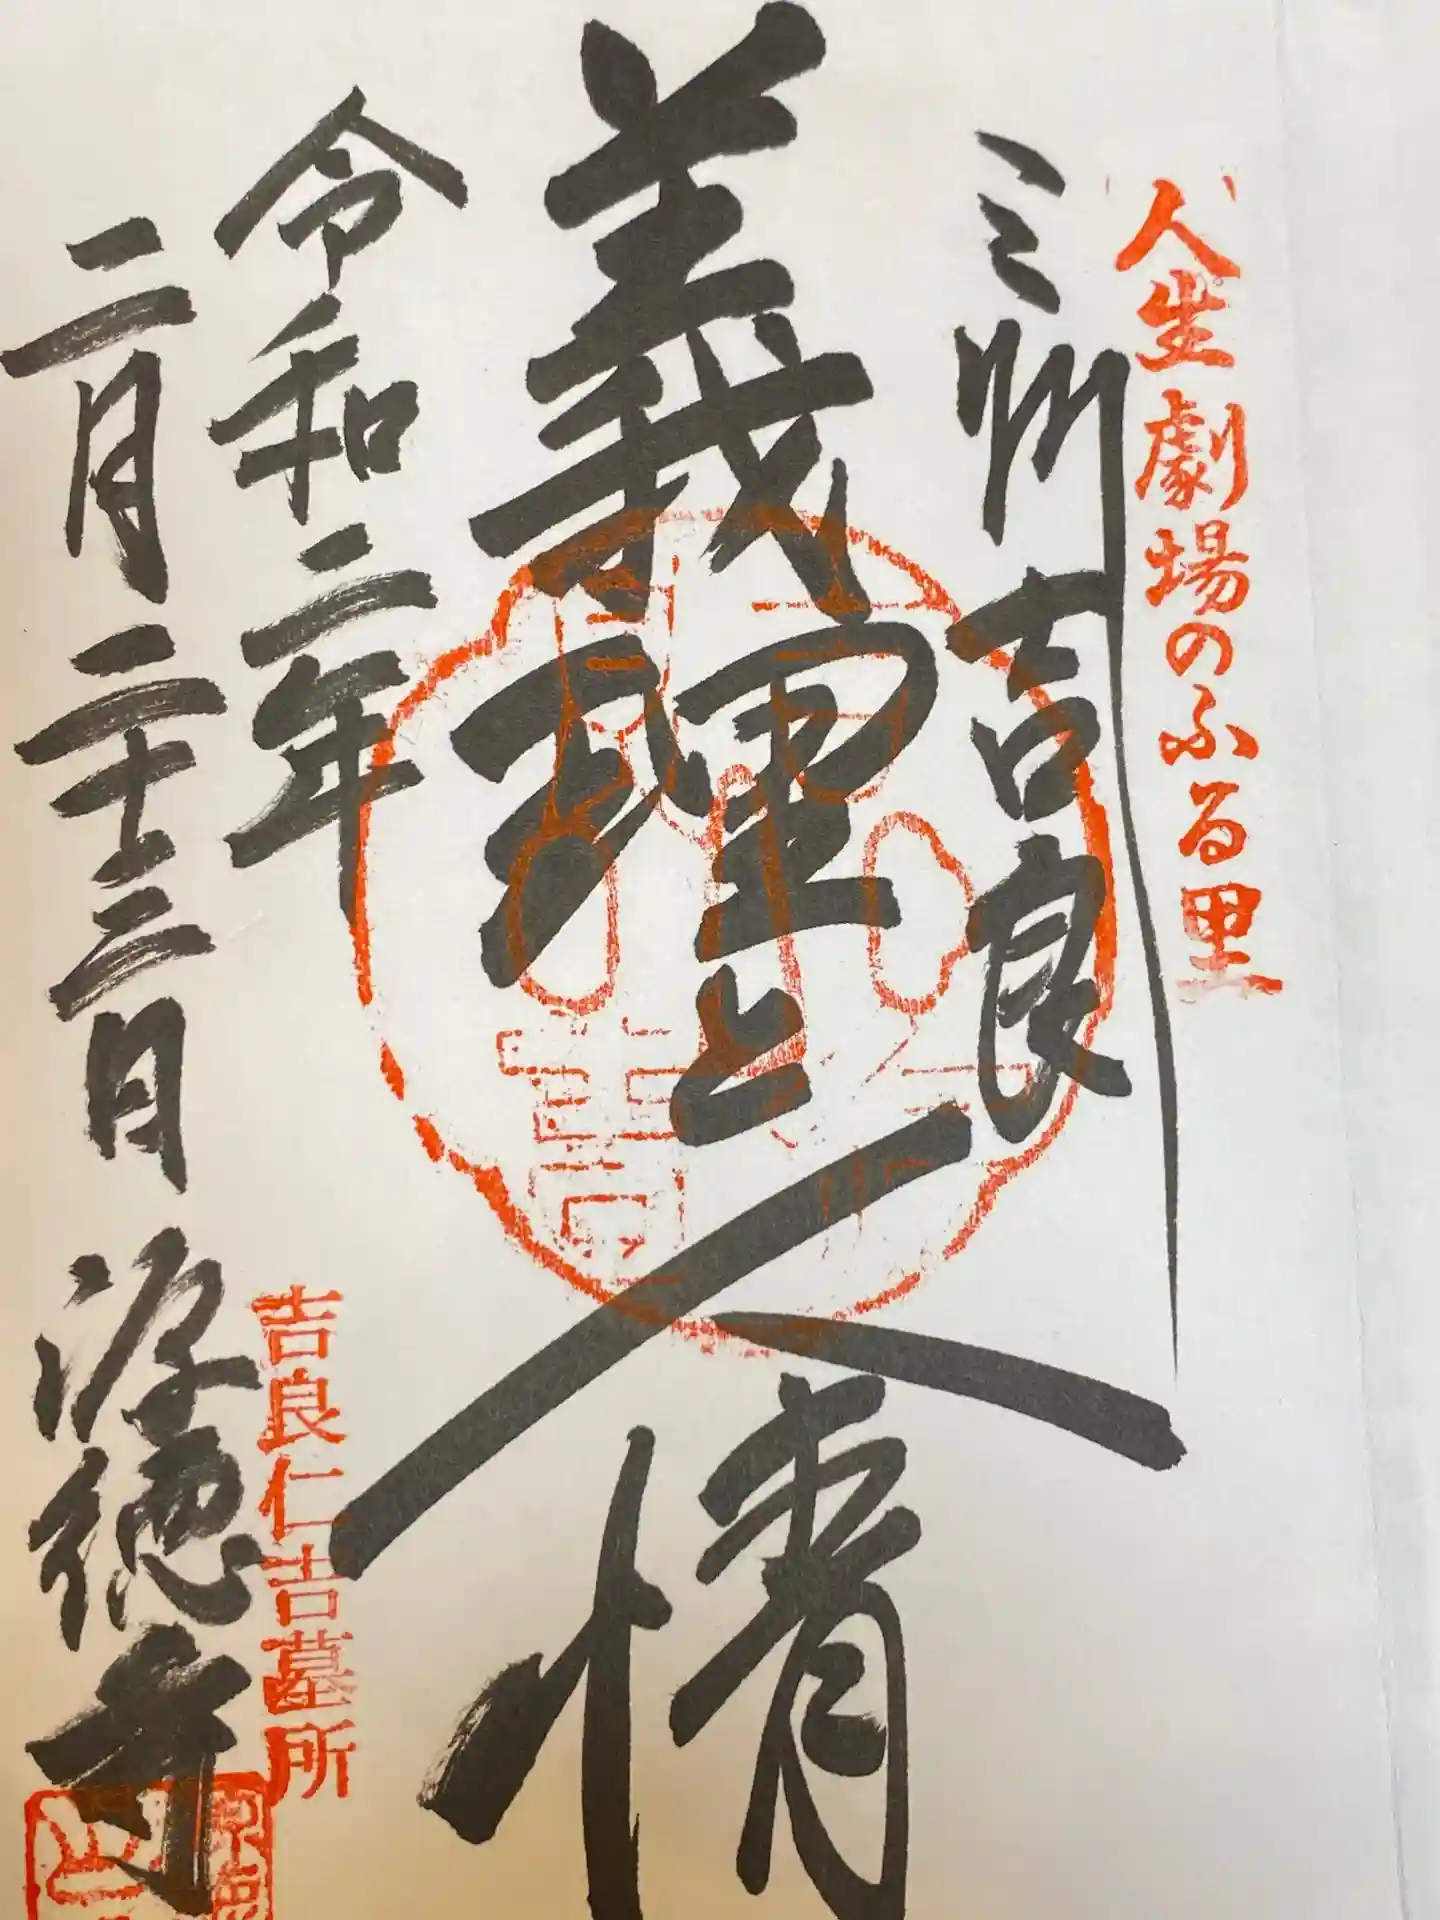 人生劇場のふる里
三州吉良
義理と人情
令和二年
二月二十三日
吉良仁吉墓所
源徳寺